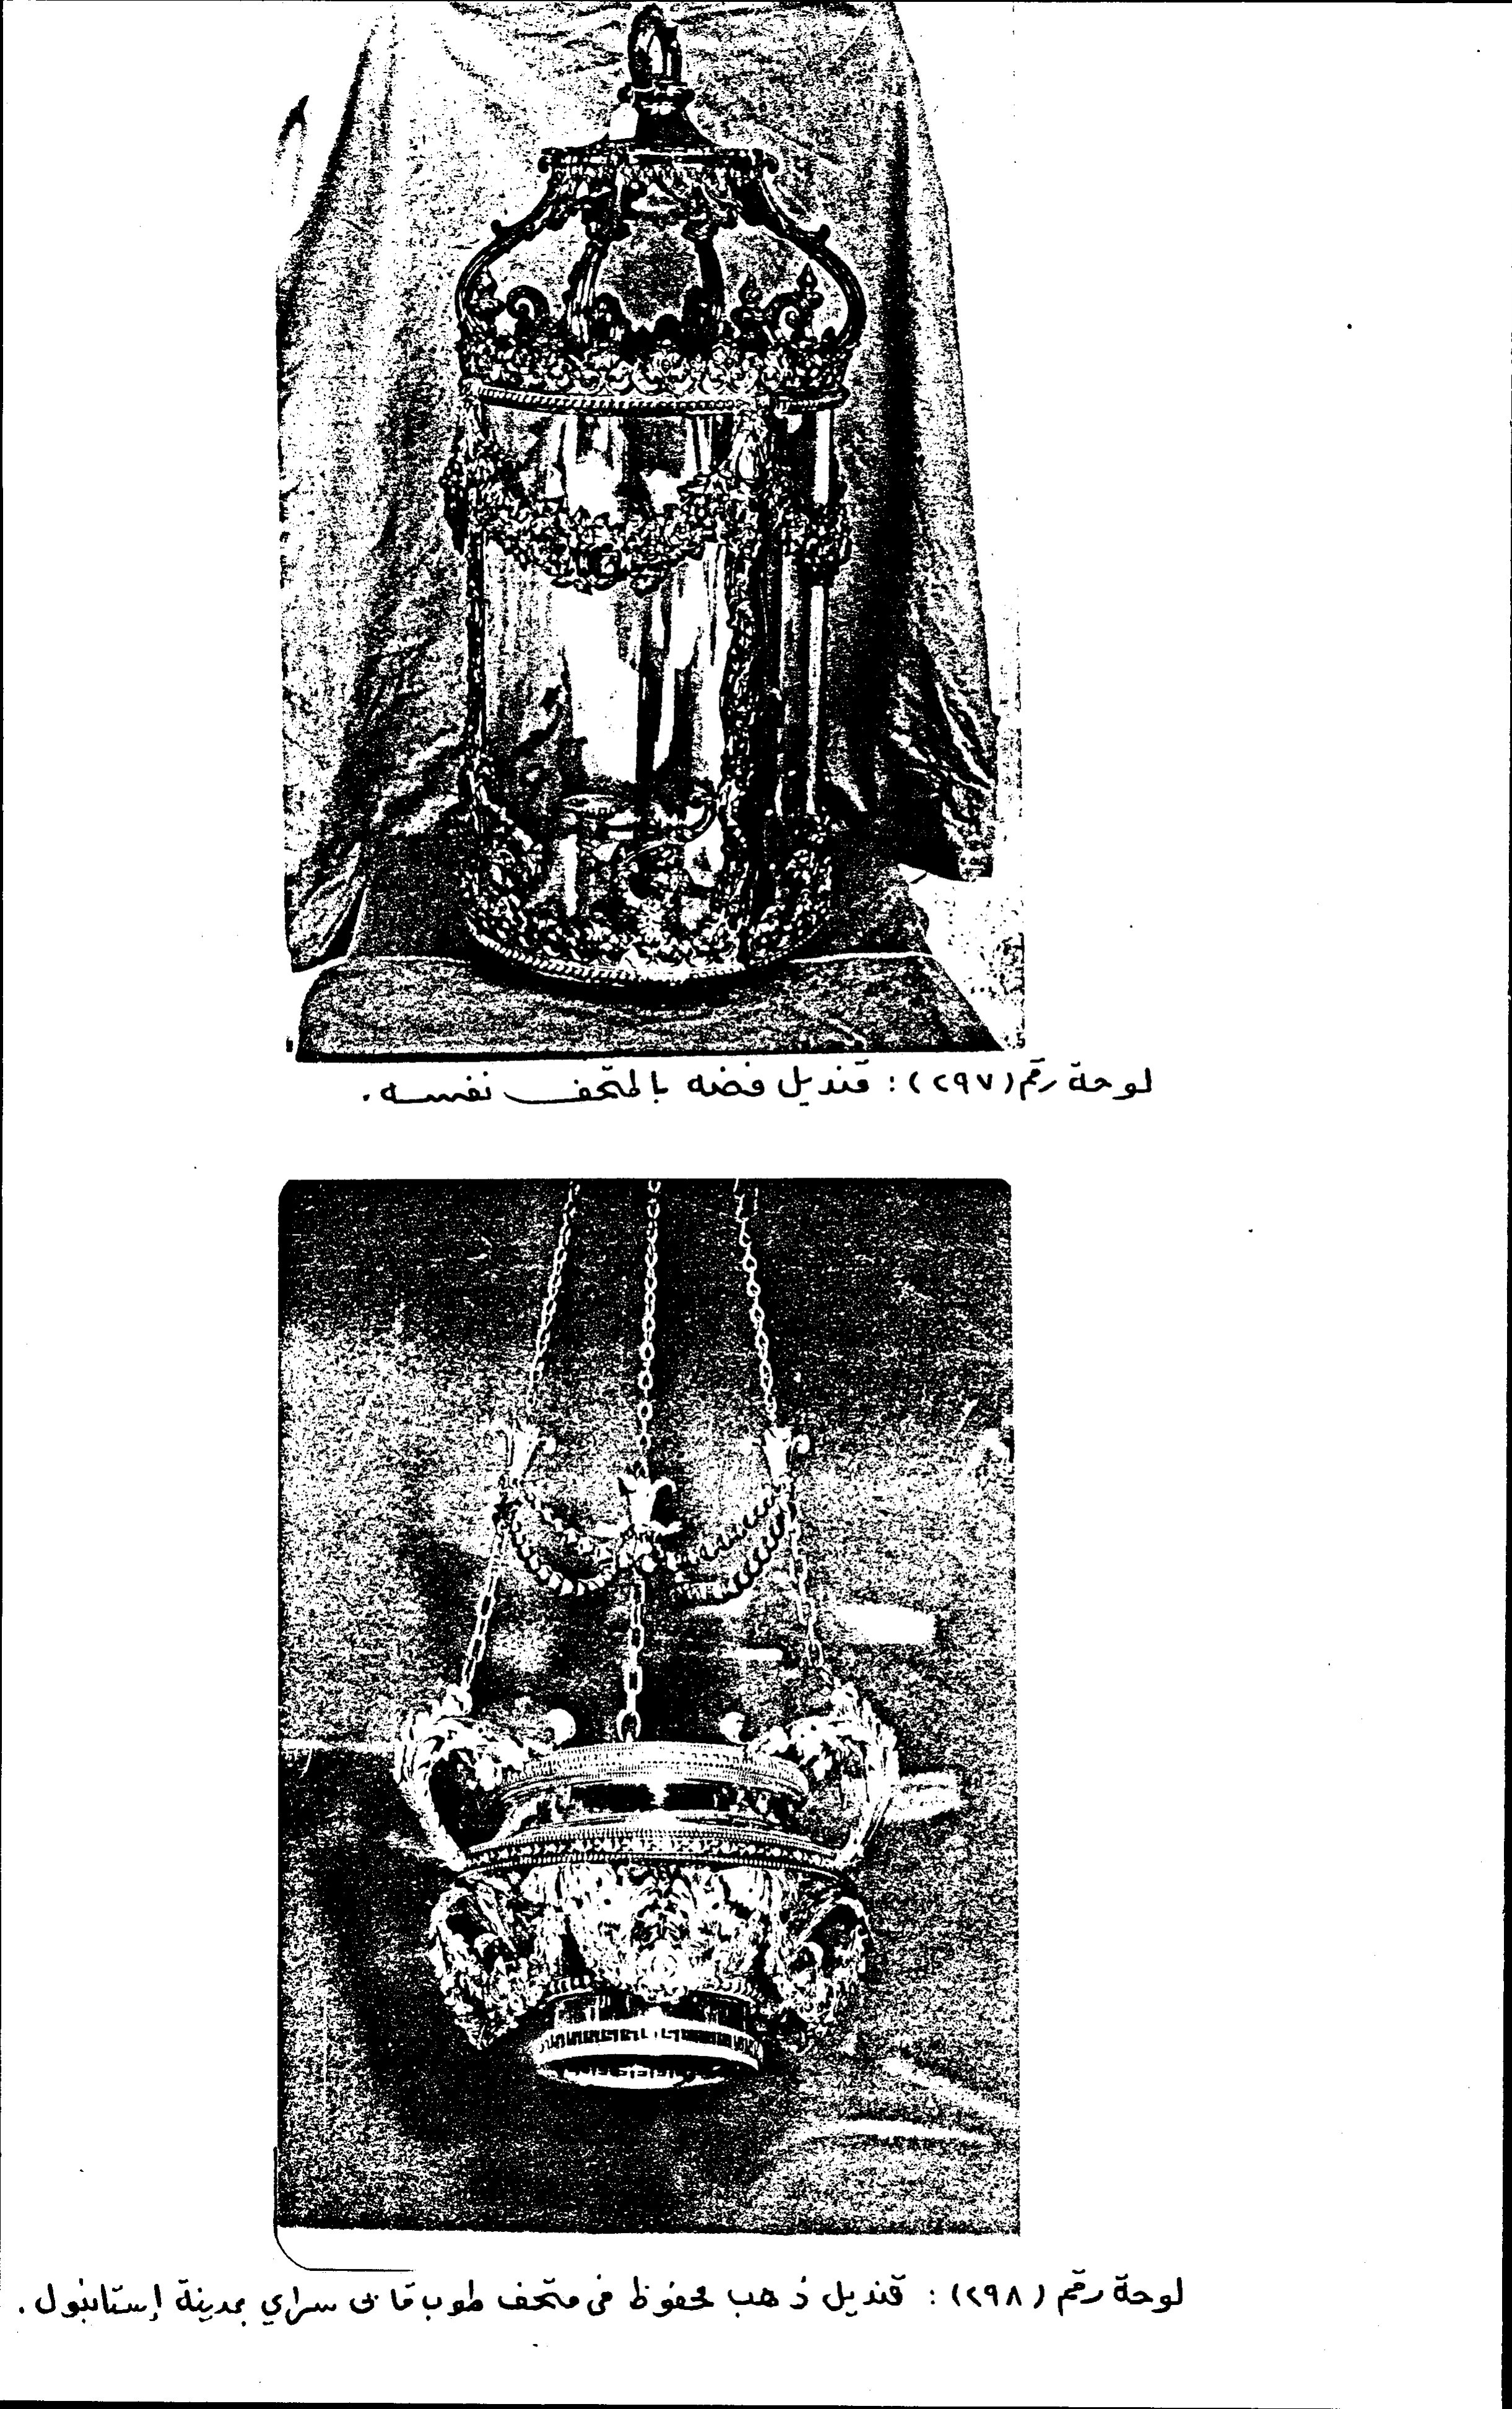 لوحة رقم (٢٩٧) : قنديل فضه بالمتحف نفسه .
لوحة رقم (٢٩٨) : قنديل ذهب محفوظ فى متحف طوب قابى سراي بمدينة إستانبول .